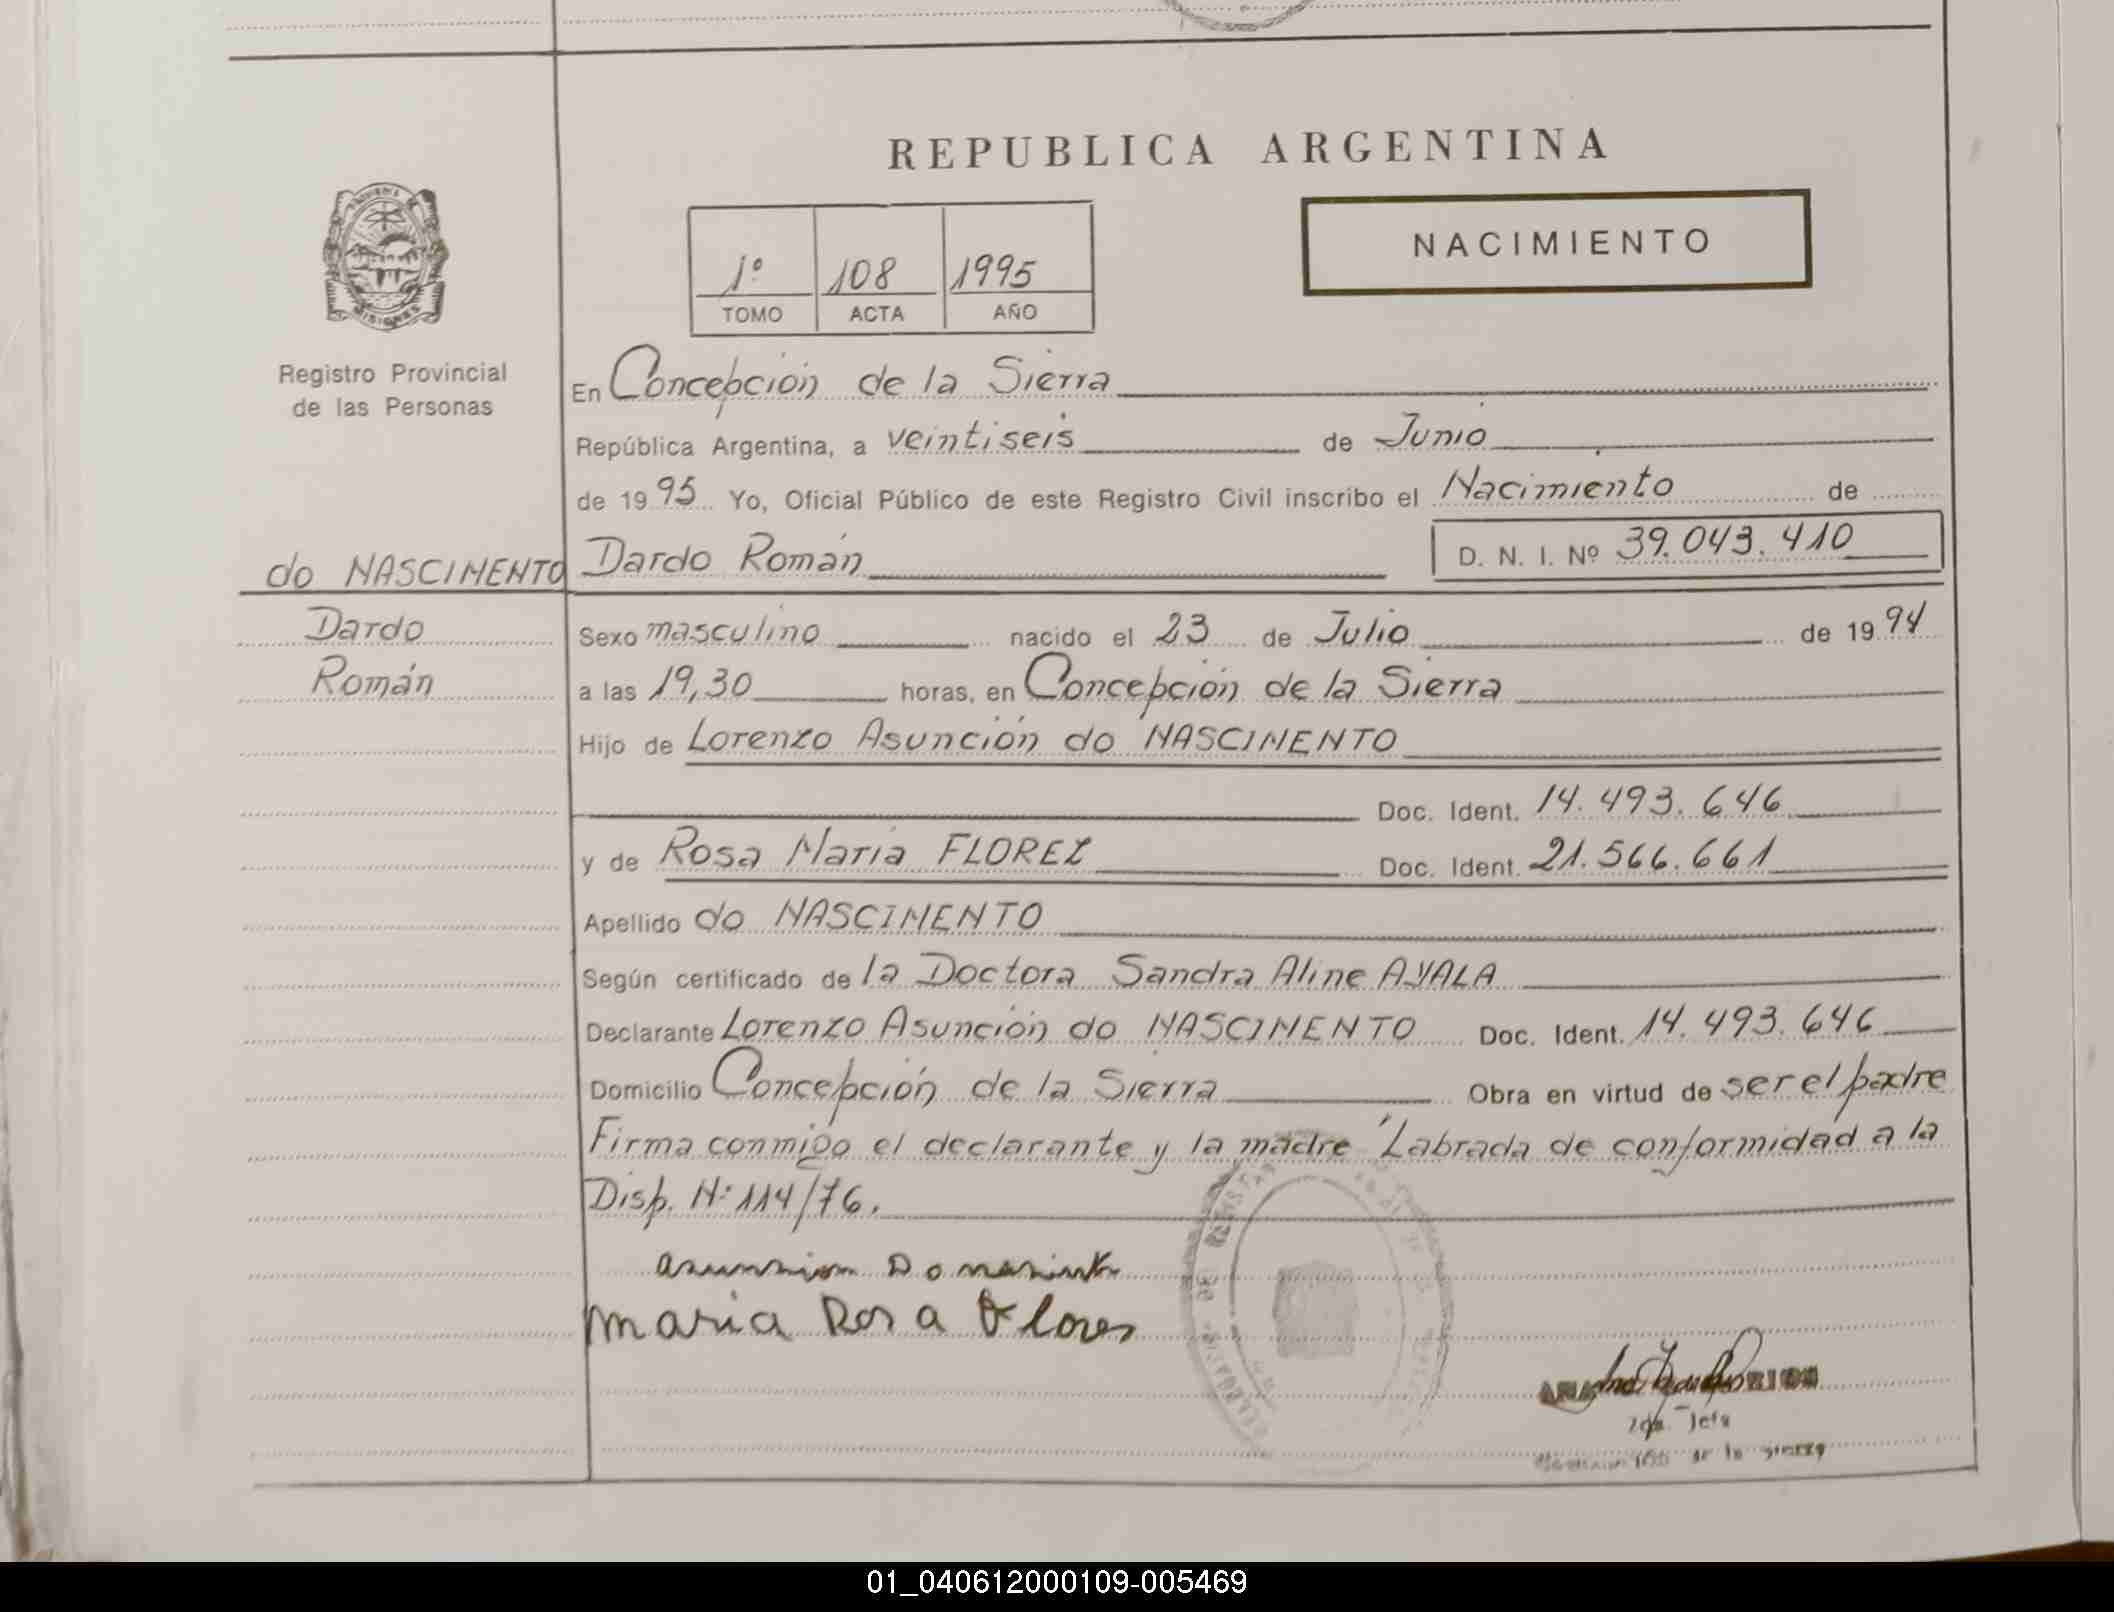 REPUBLICA ARGENTINA
NACIMIENTO
1º 108 1995
TOMO ACTA AÑO
Registro Provincial
de las Personas
En Concepción de la Sierra
República Argentina, a veintiseis de Junio
de 1995 Yo, Oficial Público de este Registro Civil inscribo el Nacimiento de
do NASCIMENTO Dardo Román D. N. I. Nº 39.043.410
Dardo Sexo masculino nacido el 23 de Julio de 1994
Román a las 19,30 horas, en Concepción de la Sierra
Hijo de Lorenzo Asunción do NASCIMENTO
Doc. Ident. 14.493.646
y de Rosa Maria FLOREZ Doc. Ident. 21.566.661
Apellido do NASCIMENTO
Según certificado de la Doctora Sandra Aline AYALA
Declarante Lorenzo Asunción do NASCIMENTO Doc. Ident. 14.493.646
Domicilio Concepción de la Sierra Obra en virtud de ser el padre
Firma conmigo el declarante y la madre Labrada de conformidad a la
Disp. Nº 114/76.
asuncion Do
Maria Rosa Flores
Jefa
de la Sierra
01_040612000109-005469